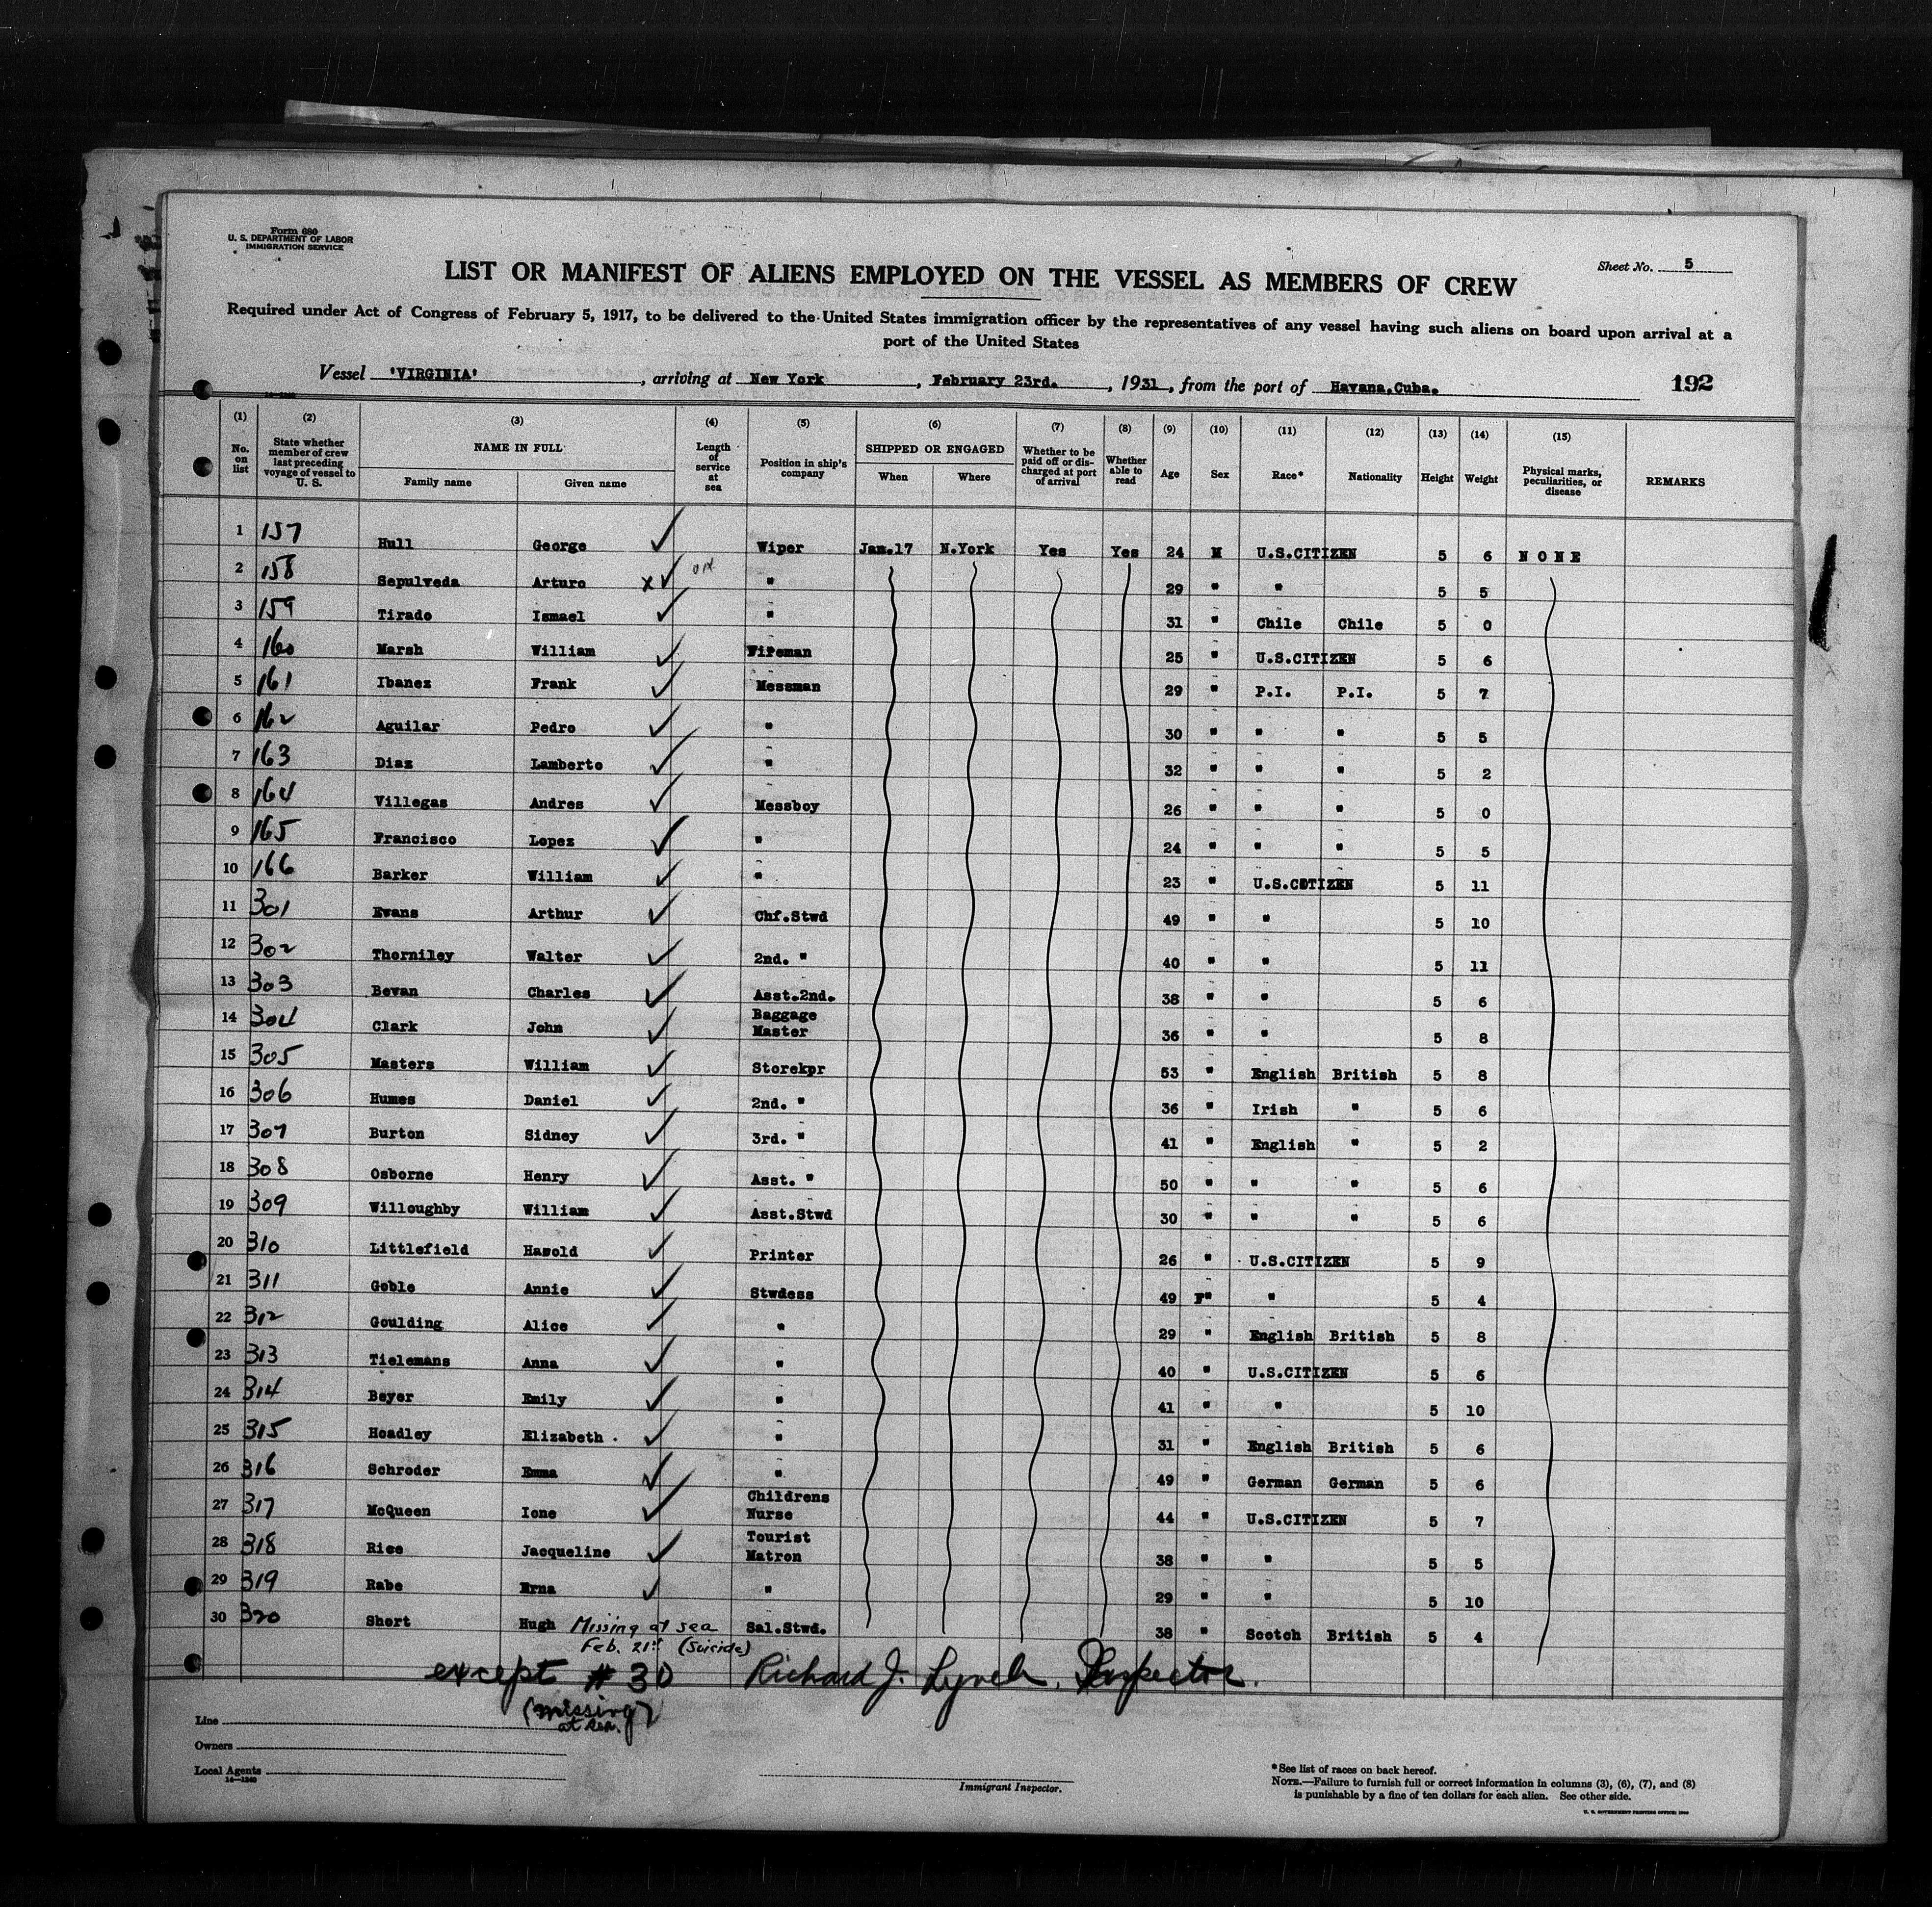 Form 680
U. S. DEPARTMENT OF LABOR
IMMIGRATION SERVICE
Sheet No. 5
LIST OR MANIFEST OF ALIENS EMPLOYED ON THE VESSEL AS MEMBERS OF CREW
Required under Act of Congress of February 5, 1917, to be delivered to the United States immigration officer by the representatives of any vessel having such aliens on board upon arrival at a
port of the United States
Vessel 'VIRGINIA' , arriving at New York , February 23rd. , 1931 , from the port of Havana,Cuba. 192
14-1240
(1) (2) (3) (4) (5) (6) (7) (8) (9) (10) (11) (12) (13) (14) (15)
No. on list State whether member of crew last preceding voyage of vessel to U. S. NAME IN FULL Length of service at sea Position in ship's company SHIPPED OR ENGAGED Whether to be paid off or discharged at port of arrival Whether able to read Age Sex Race* Nationality Height Weight Physical marks, peculiarities, or disease REMARKS
Family name Given name When Where
1 157 Hull George ✓ Wiper Jan.17 N.York Yes Yes 24 M U.S.CITIZEN 5 6 NONE
2 158 Sepulveda Arturo x✓ " 29 " " 5 5
3 159 Tirado Ismael ✓ " 31 " Chile Chile 5 0
4 160 Marsh William ✓ Fireman 25 " U.S.CITIZEN 5 6
5 161 Ibanez Frank ✓ Messman 29 " P.I. P.I. 5 7
6 162 Aguilar Pedro ✓ " 30 " " " 5 5
7 163 Diaz Lamberto ✓ " 32 " " " 5 2
8 164 Villegas Andres ✓ Messboy 26 " " " 5 0
9 165 Francisco Lopez ✓ " 24 " " " 5 5
10 166 Barker William ✓ " 23 " U.S.CITIZEN 5 11
11 301 Evans Arthur ✓ Chf.Stwd 49 " " 5 10
12 302 Thorniley Walter ✓ 2nd. " 40 " " 5 11
13 303 Bevan Charles ✓ Asst.2nd. 38 " " 5 6
14 304 Clark John ✓ Baggage Master 36 " " 5 8
15 305 Masters William ✓ Storekpr 53 " English British 5 8
16 306 Humes Daniel ✓ 2nd. " 36 " Irish " 5 6
17 307 Burton Sidney ✓ 3rd. " 41 " English " 5 2
18 308 Osborne Henry ✓ Asst. " 50 " " " 5 6
19 309 Willoughby William ✓ Asst.Stwd 30 " " " 5 6
20 310 Littlefield Harold ✓ Printer 26 " U.S.CITIZEN 5 9
21 311 Goble Annie ✓ Stwdess 49 F" " 5 4
22 312 Goulding Alice ✓ " 29 " English British 5 8
23 313 Tielemans Anna ✓ " 40 " U.S.CITIZEN 5 6
24 314 Beyer Emily ✓ " 41 " " 5 10
25 315 Hoadley Elizabeth . ✓ " 31 " English British 5 6
26 316 Schroder Emma ✓ " 49 " German German 5 6
27 317 McQueen Ione ✓ Childrens Nurse 44 " U.S.CITIZEN 5 7
28 318 Rice Jacqueline ✓ Tourist Matron 38 " " 5 5
29 319 Rabe Erna ✓ " 29 " " 5 10
30 320 Short Hugh Missing at sea Sal.Stwd. 38 " Scotch British 5 4
Feb. 21st (Suicide)
except # 30 Richard J. Lynch. Inspector.
(missing
at sea.)
Line
Owners
Local Agents
14-1240
Immigrant Inspector.
*See list of races on back hereof.
NOTE.—Failure to furnish full or correct information in columns (3), (6), (7), and (8)
is punishable by a fine of ten dollars for each alien. See other side.